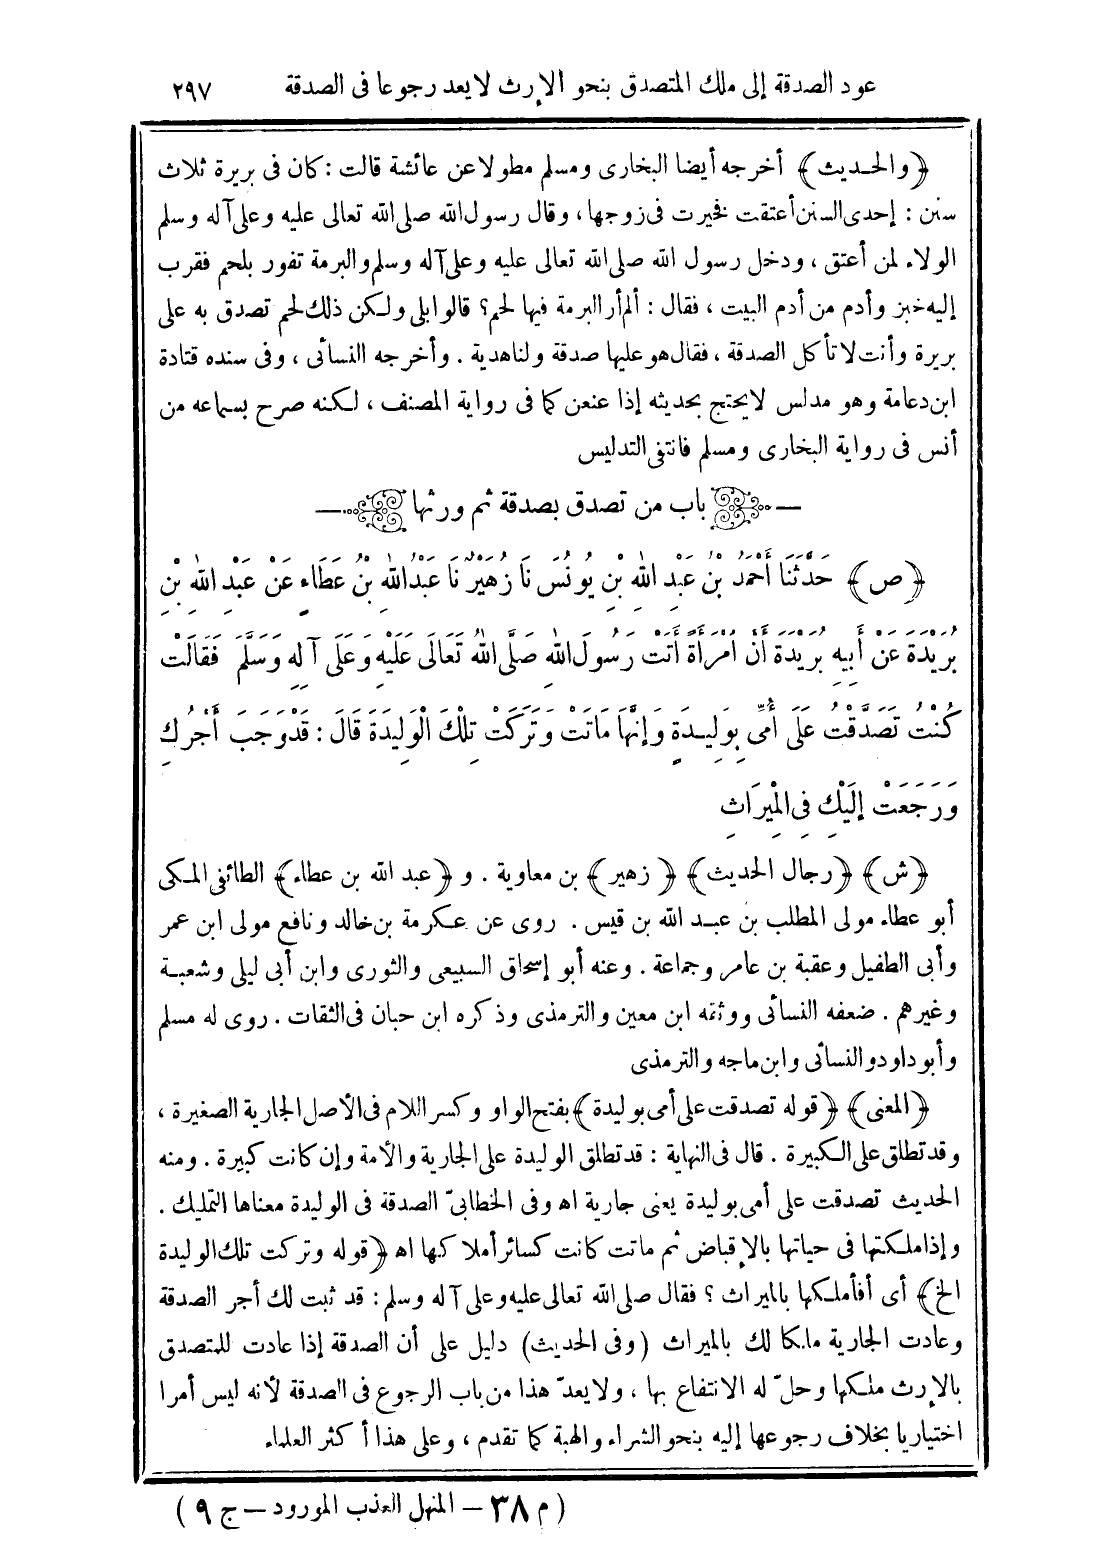 عود الصدقة إلى ملك المتصدق بنحو الإرث لا يعد رجوعا فى الصدقة ٢٩٧
﴿والحديث﴾ أخرجه أيضا البخارى ومسلم مطولا عن عائشة قالت : كان فى بريرة ثلاث
سنن : إحدى السنن أعتقت فخيرت فى زوجها ، وقال رسول الله صلى الله تعالى عليه وعلى آله وسلم
الولاء لمن أعتق ، ودخل رسول الله صلى الله تعالى عليه وعلى آله وسلم والبرمة تفور بلحم فقرب
إليه خبز وأدم من أدم البيت ، فقال : ألم أر البرمة فيها لحم؟ قالوا بلى ولكن ذلك لحم تصدق به على
بريرة وأنت لا تأكل الصدقة ، فقال هو عليها صدقة ولنا هدية . وأخرجه النسائى ، وفى سنده قتادة
ابن دعامة وهو مدلس لا يحتج بحديثه إذا عنعن كما فى رواية المصنف ، لكنه صرح بسماعه من
أنس فى رواية البخارى ومسلم فانتفى التدليس
— باب من تصدق بصدقة ثم ورثها —
﴿ص﴾ حَدَّثَنَا أَحْمَدُ بْنُ عَبْدِ اللهِ بْنِ يُونُسَ نَا زُهَيْرٌ نَا عَبْدُ اللهِ بْنُ عَطَاءٍ عَنْ عَبْدِ اللهِ بْنِ
بُرَيْدَةَ عَنْ أَبِيهِ بُرَيْدَةَ أَنَّ امْرَأَةً أَتَتْ رَسُولَ اللهِ صَلَّى اللهُ تَعَالَى عَلَيْهِ وَعَلَى آلِهِ وَسَلَّمَ فَقَالَتْ
كُنْتُ تَصَدَّقْتُ عَلَى أُمِّى بِوَلِيدَةٍ وَإِنَّهَا مَاتَتْ وَتَرَكَتْ تِلْكَ الْوَلِيدَةَ قَالَ : قَدْ وَجَبَ أَجْرُكِ
وَرَجَعَتْ إِلَيْكِ فِى الْمِيرَاثِ
﴿ش﴾ ﴿رجال الحديث﴾ ﴿زهير﴾ بن معاوية . و ﴿عبد الله بن عطاء﴾ الطائفى المكى
أبو عطاء مولى المطلب بن عبد الله بن قيس . روى عن عكرمة بن خالد ونافع مولى ابن عمر
وأبى الطفيل وعقبة بن عامر وجماعة . وعنه أبو إسحاق السبيعى والثورى وابن أبى ليلى وشعبة
وغيرهم . ضعفه النسائى ووثقه ابن معين والترمذى وذكره ابن حبان فى الثقات . روى له مسلم
وأبو داود والنسائى وابن ماجه والترمذى
﴿المعنى﴾ ﴿قوله تصدقت على أمى بوليدة﴾ بفتح الواو وكسر اللام فى الأصل الجارية الصغيرة ،
وقد تطلق على الكبيرة . قال فى النهاية : قد تطلق الوليدة على الجارية والأمة وإن كانت كبيرة . ومنه
الحديث تصدقت على أمى بوليدة يعنى جارية اه وفى الخطابىّ الصدقة فى الوليدة معناها التمليك .
وإذا ملكتها فى حياتها بالإقباض ثم ماتت كانت كسائر أملاكها اه ﴿قوله وتركت تلك الوليدة
الخ﴾ أى أفأملكها بالميراث ؟ فقال صلى الله تعالى عليه وعلى آله وسلم : قد ثبت لك أجر الصدقة
وعادت الجارية ملكا لك بالميراث (وفى الحديث) دليل على أن الصدقة إذا عادت للمتصدق
بالإرث ملكها وحلّ له الانتفاع بها ، ولا يعدّ هذا من باب الرجوع فى الصدقة لأنه ليس أمرا
اختياريا بخلاف رجوعها إليه بنحو الشراء والهبة كما تقدم ، وعلى هذا أكثر العلماء
(م ٣٨ – المنهل العذب المورود – ج ٩)